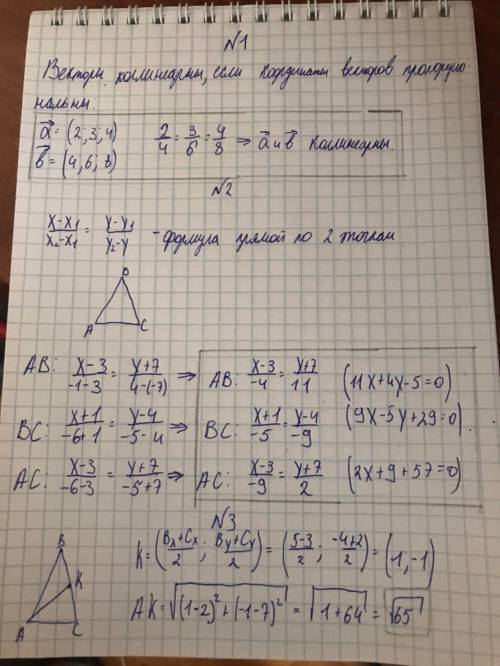 №1
Векторы коллинеарны, если координаты векторов пропорцио-
нальны.
a⃗ = (2; 3; 4) 2/4 = 3/6 = 4/8 ⇒ a⃗ и b⃗ коллинеарны.
b⃗ = (4, 6, 8)
№2
(x-x₁)/(x₂-x₁) = (y-y₁)/(y₂-y) - формула прямой по 2 точкам
B
A C
AB: (x-3)/(-1-3) = (y+7)/(4-(-7)) ⇒ AB: (x-3)/(-4) = (y+7)/11 (11x+4y-5=0)
BC: (x+1)/(-6+1) = (y-4)/(-5-4) ⇒ BC: (x+1)/(-5) = (y-4)/(-9) (9x-5y+29=0)
AC: (x-3)/(-6-3) = (y+7)/(-5+7) ⇒ AC: (x-3)/(-9) = (y+7)/2 (2x+9+57=0)
№3
B
K
A C
K = ((Bx+Cx)/2 ; (By+Cy)/2) = ((5-3)/2 ; (-4+2)/2) = (1, -1)
AK = √((1-2)²+(-1-7)²) = √(1+64) = √65